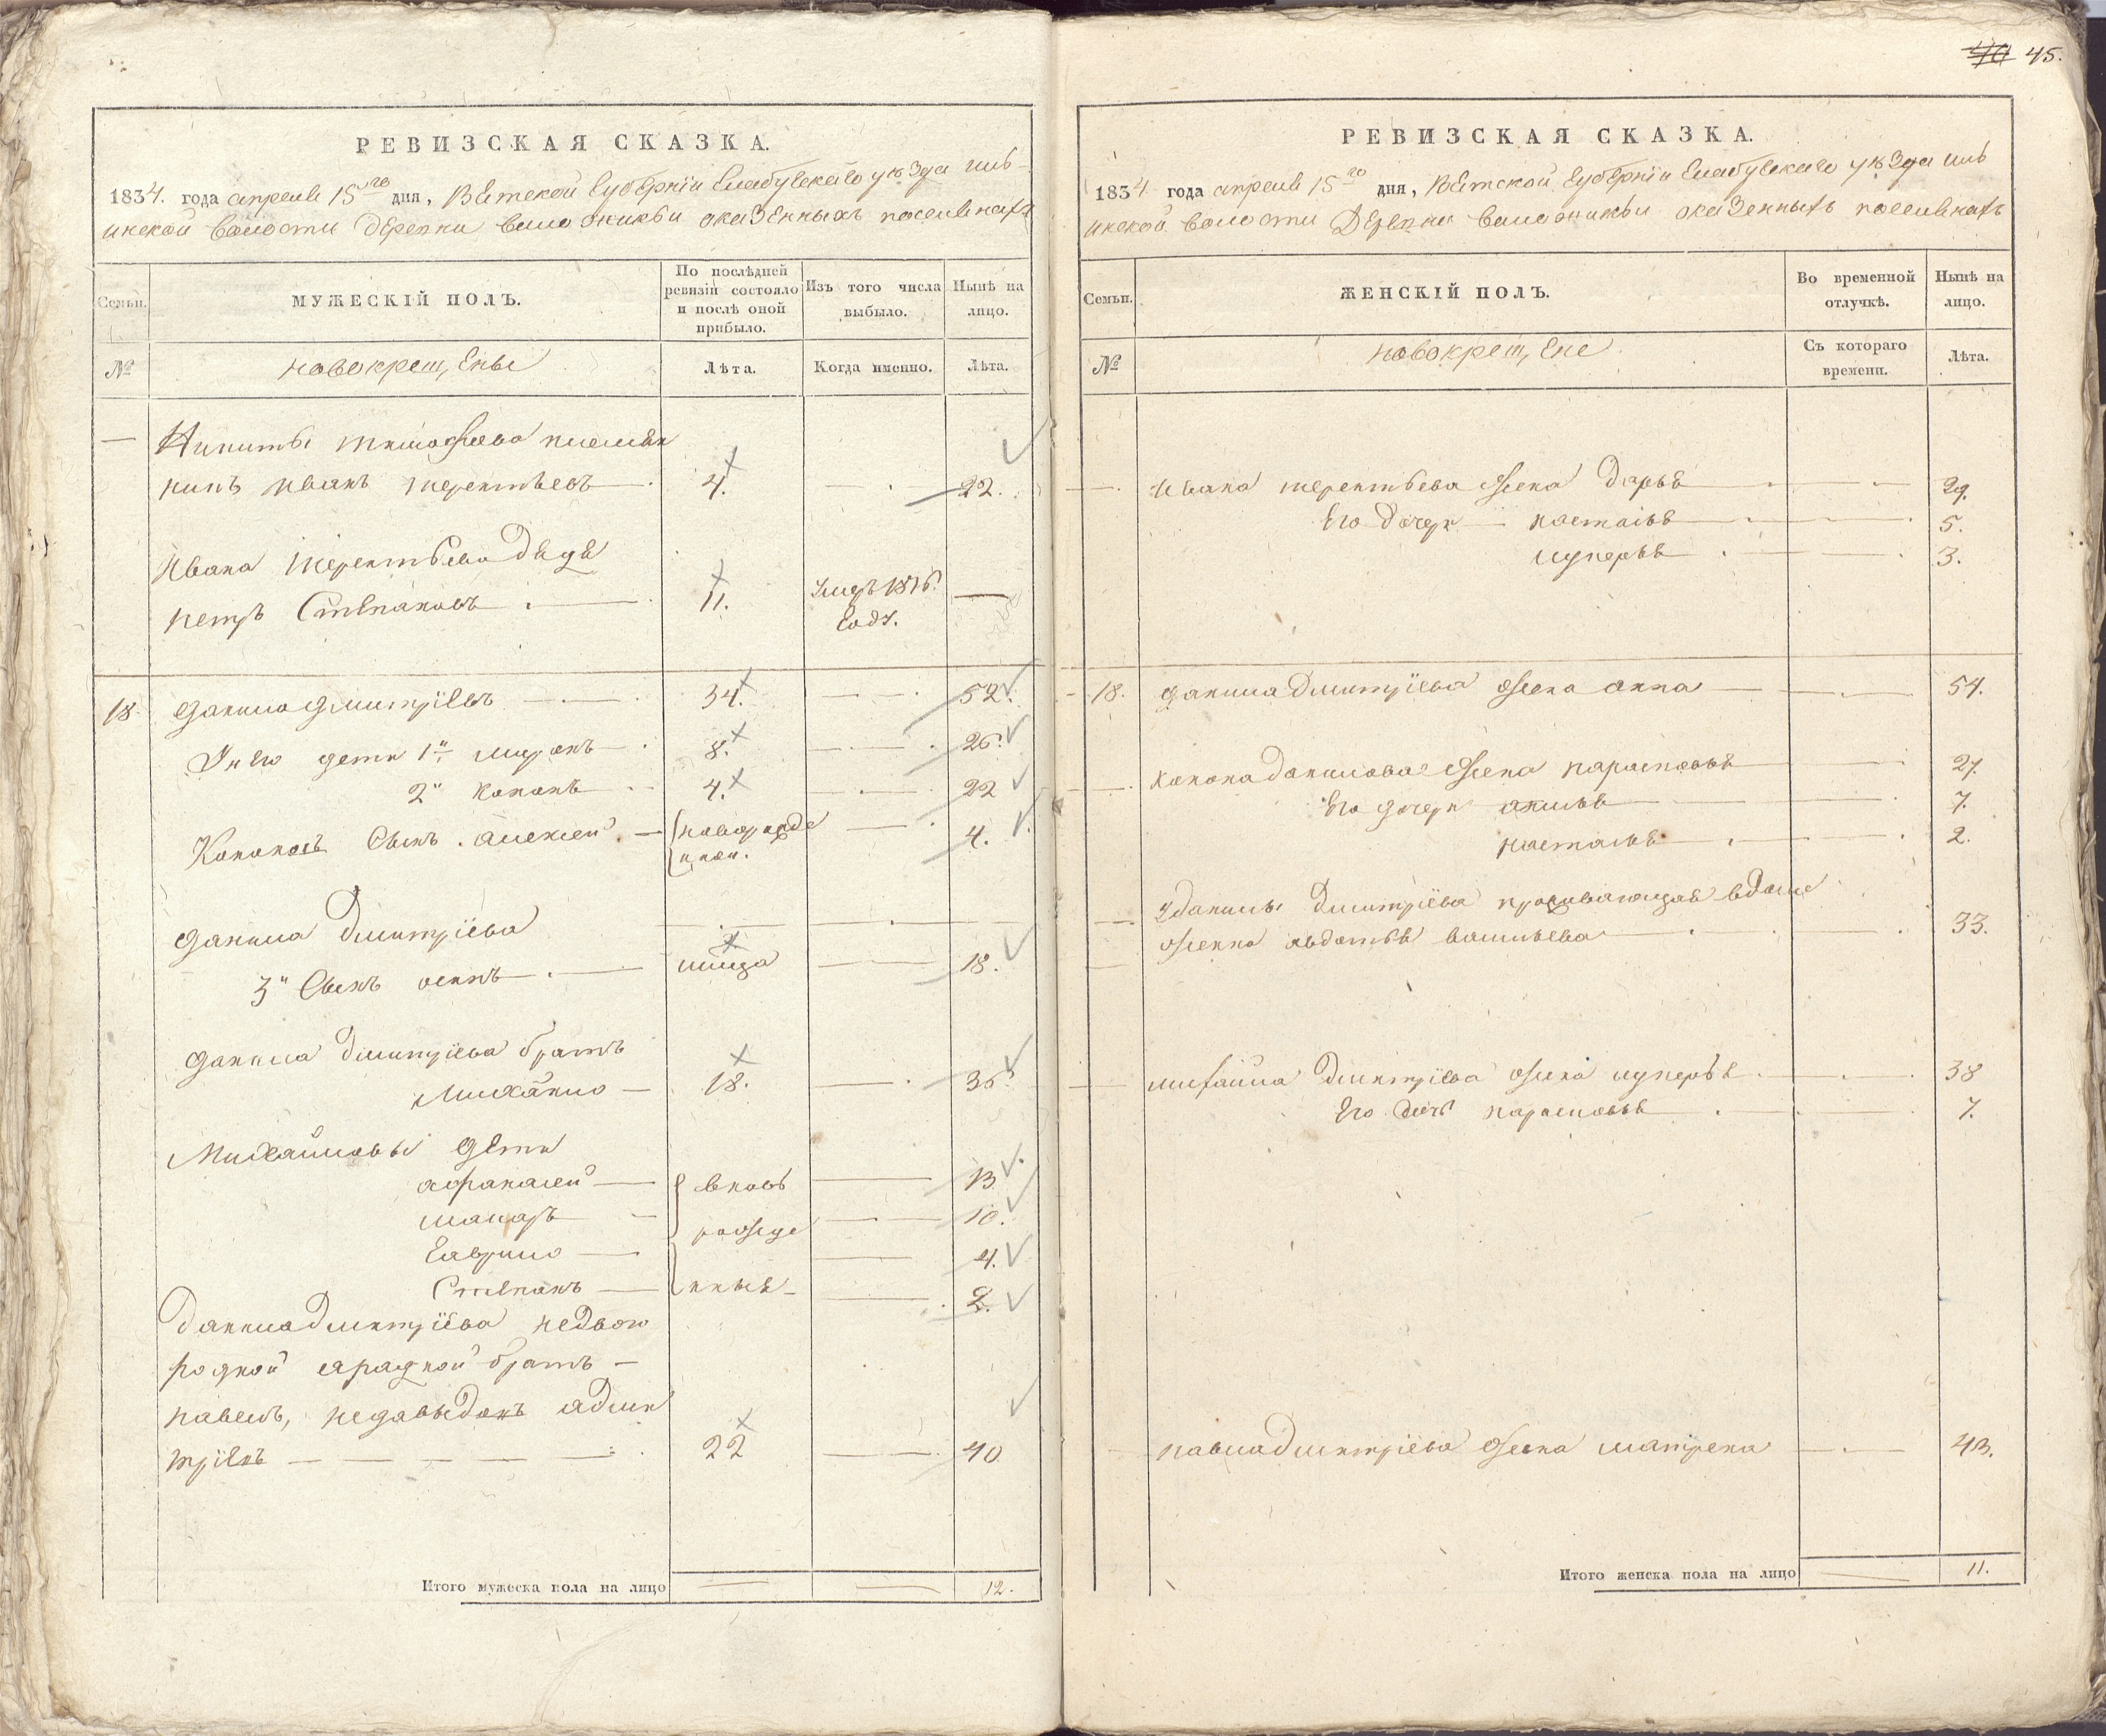 45.
РЕВИЗСКАЯ СКАЗКА.
1834. года апреля 15го дня, Вятской Губернiи Елабужскаго уѣзда иль-
инской волости деревни оказенныхъ поселянахъ
Семьи.
МУЖЕСКІЙ ПОЛЪ.
По послѣдней ревизіи состояло и послѣ оной прибыло.
Изъ того числа выбыло.
Нынѣ на лицо.
№
новокрещ,ены
Лѣта.
Когда именно.
Лѣта.
Никиты тимофеева племян
никъ иванъ терентьевъ 4. 22.
Ивана терентьева дядя
петръ Степановъ 11. Умръ 1816. году.
18 данила дмитрїевъ 34. 52.
У него дети 1й миронъ 8. 26.
2й кононъ 4. 22
Кононовъ сынъ алексей новорожде нной. 4.
данила Дмитрїева
3й Сынъ осипъ 18.
данила дмитрїева братъ
Михайло 18. 36.
Михайловы дети
афанасей вновь 13
макаръ 10.
гаврило рожде 4.
Степанъ нныя 2.
данила дмитрїева недвою
родной братъ
павелъ, дми
трїевъ 22 40
Итого мужеска пола на лицо 12.
РЕВИЗСКАЯ СКАЗКА.
1834 года апреля 15го дня, Вятской Губернiи Елабужскаго уѣзда иль
инской волости деревни оказенныхъ поселянахъ
Семьи.
ЖЕНСКІЙ ПОЛЪ.
Во временной отлучкѣ.
Нынѣ на лицо.
№
новокрещ,ене
Съ котораго времени.
Лѣта.
ивана терентьева жена дарья 29.
Его дочери настасья 5.
лукерья 3.
18. данила дмитрїева жена анна 54.
конона данилова жена парасковья 27.
Его дочери акилья 7.
настасья 2.
Уданилы дмитрїева проживающая вдоме
жонка авдотья васильева 33.
михайла дмитрїева жена лукерья 38
Его дочь парасковья 7.
павла дмитрїева жена матрена 43.
Итого женска пола на лицо 11.